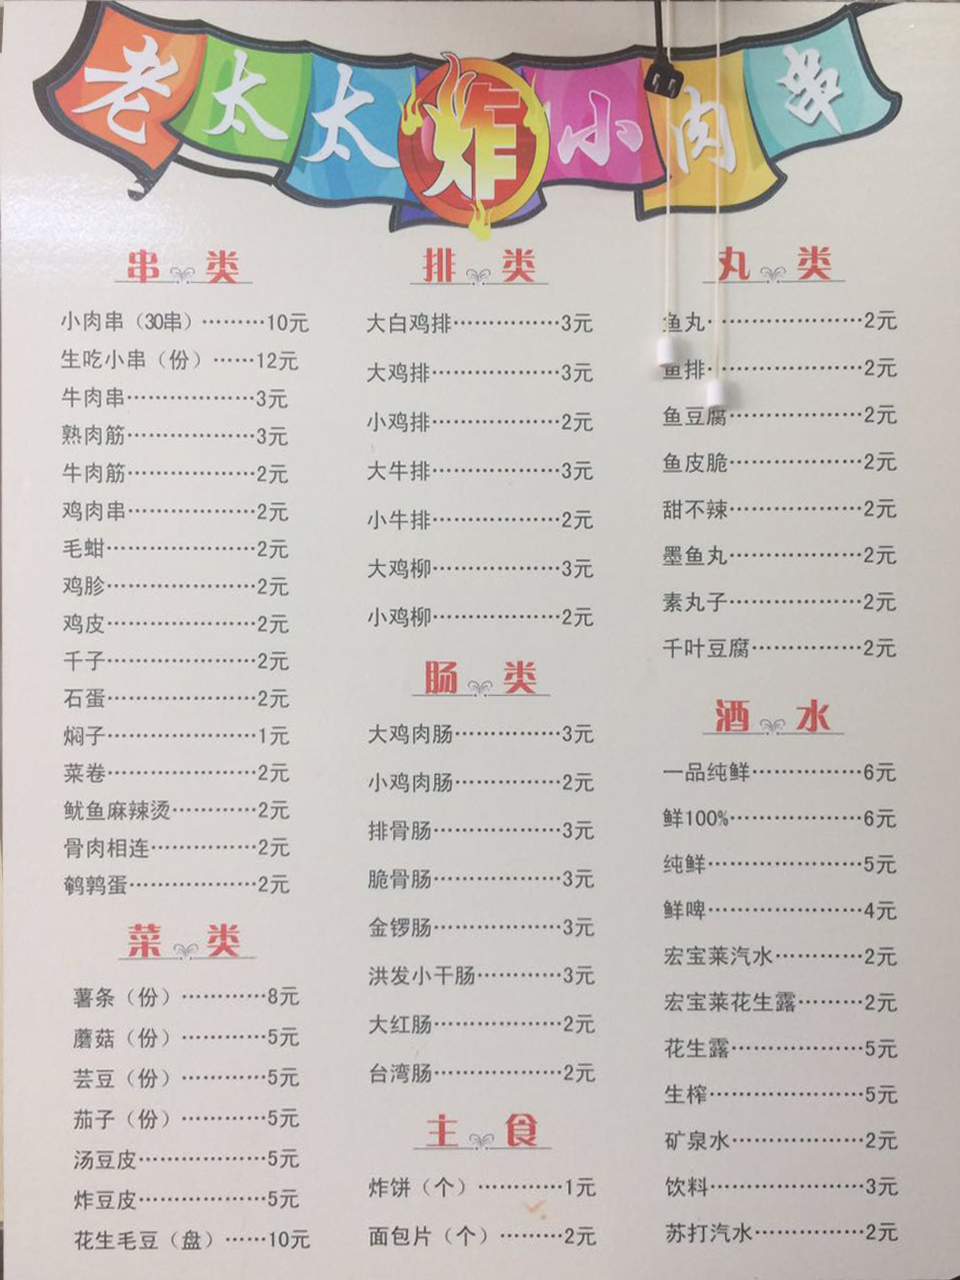 老太太炸小肉串
串类
小肉串（30串）………10元
生吃小串（份）……12元
牛肉串………………3元
熟肉筋………………3元
牛肉筋………………2元
鸡肉串………………2元
毛蚶…………………2元
鸡胗…………………2元
鸡皮…………………2元
千子…………………2元
石蛋…………………2元
焖子…………………1元
菜卷…………………2元
鱿鱼麻辣烫…………2元
骨肉相连……………2元
鹌鹑蛋………………2元
菜类
薯条（份）…………8元
蘑菇（份）…………5元
芸豆（份）…………5元
茄子（份）…………5元
汤豆皮………………5元
炸豆皮………………5元
花生毛豆（盘）……10元
排类
大白鸡排……………3元
大鸡排………………3元
小鸡排………………2元
大牛排………………3元
小牛排………………2元
大鸡柳………………3元
小鸡柳………………2元
肠类
大鸡肉肠……………3元
小鸡肉肠……………2元
排骨肠………………3元
脆骨肠………………3元
金锣肠………………3元
洪发小干肠…………3元
大红肠………………2元
台湾肠………………2元
主食
炸饼（个）…………1元
面包片（个）………2元
丸类
鱼丸…………………2元
鱼排…………………2元
鱼豆腐………………2元
鱼皮脆………………2元
甜不辣………………2元
墨鱼丸………………2元
素丸子………………2元
千叶豆腐……………2元
酒水
一品纯鲜……………6元
鲜100%………………6元
纯鲜…………………5元
鲜啤…………………4元
宏宝莱汽水…………2元
宏宝莱花生露………2元
花生露………………5元
生榨…………………5元
矿泉水………………2元
饮料…………………3元
苏打汽水……………2元